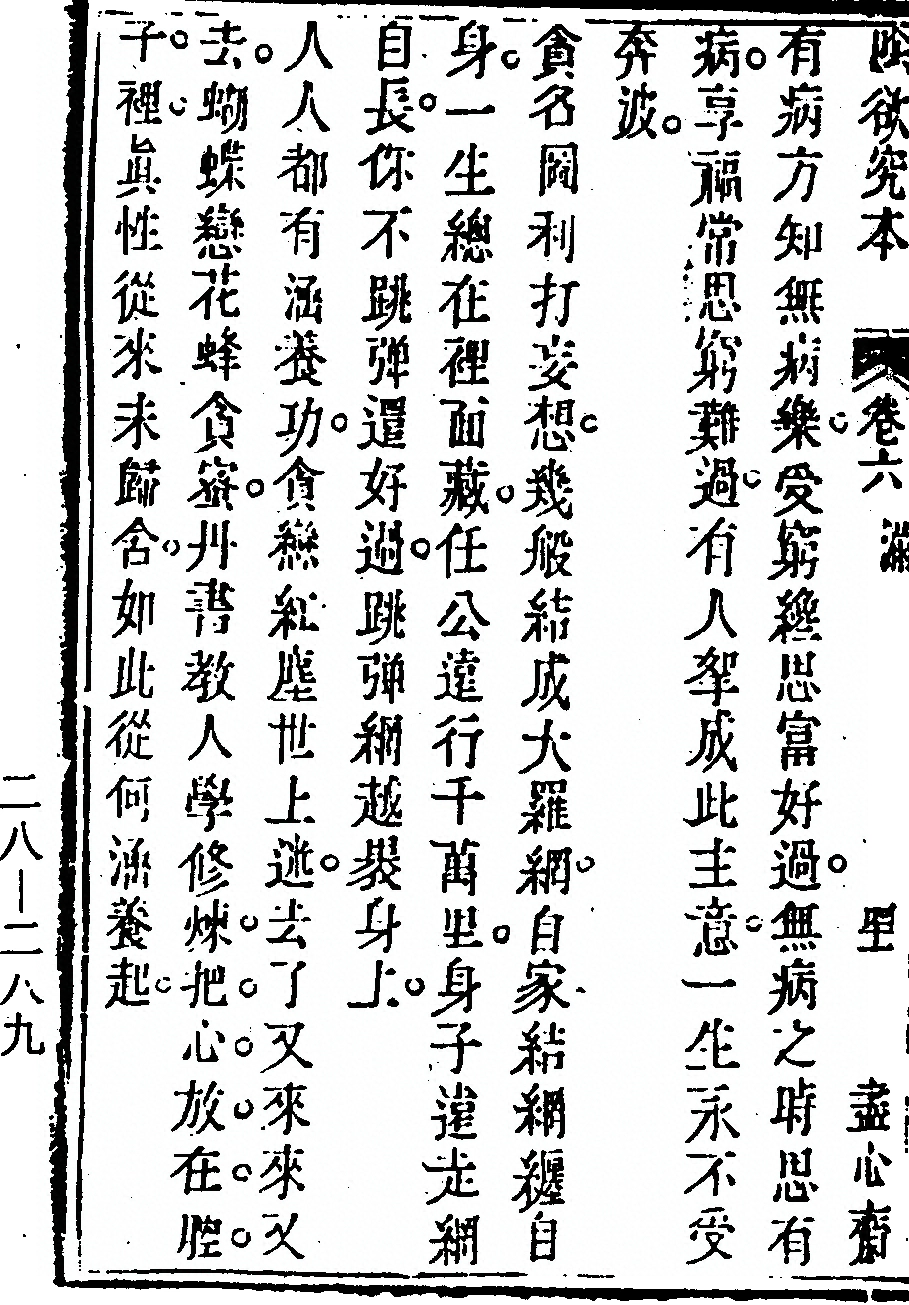 欲究本　卷六　里　盡心齋
有病方知無病樂。受窮纔思富好過。無病之時思有
病。享福常思窮難過。有人拏成此主意。一生永不受
奔波。
貪名圖利打妄想。幾般結成大羅網。自家結網纏自
身。一生總在裡面藏。任公遠行千萬里。身子遠走網
自長。你不跳彈還好過。跳彈網越裹身上。
人人都有涵養功。貪戀紅塵世上迷。去了又來來又
去。蝴蝶戀花蜂貪蜜。丹書教人學修煉。把。心。放。在。腔。
子。裡。眞性從來未歸舍。如此從何涵養起。
二八—二八九